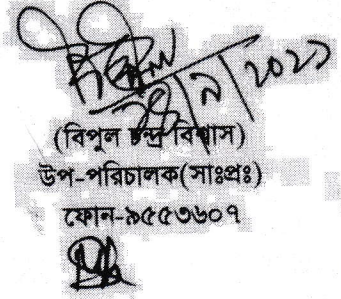 ২০২১
(বিপুল চন্দ্র বিশ্বাস)
উপ-পরিচালক(সাঃপ্রঃ)
ফোন-৯৫৫৩৬০৭